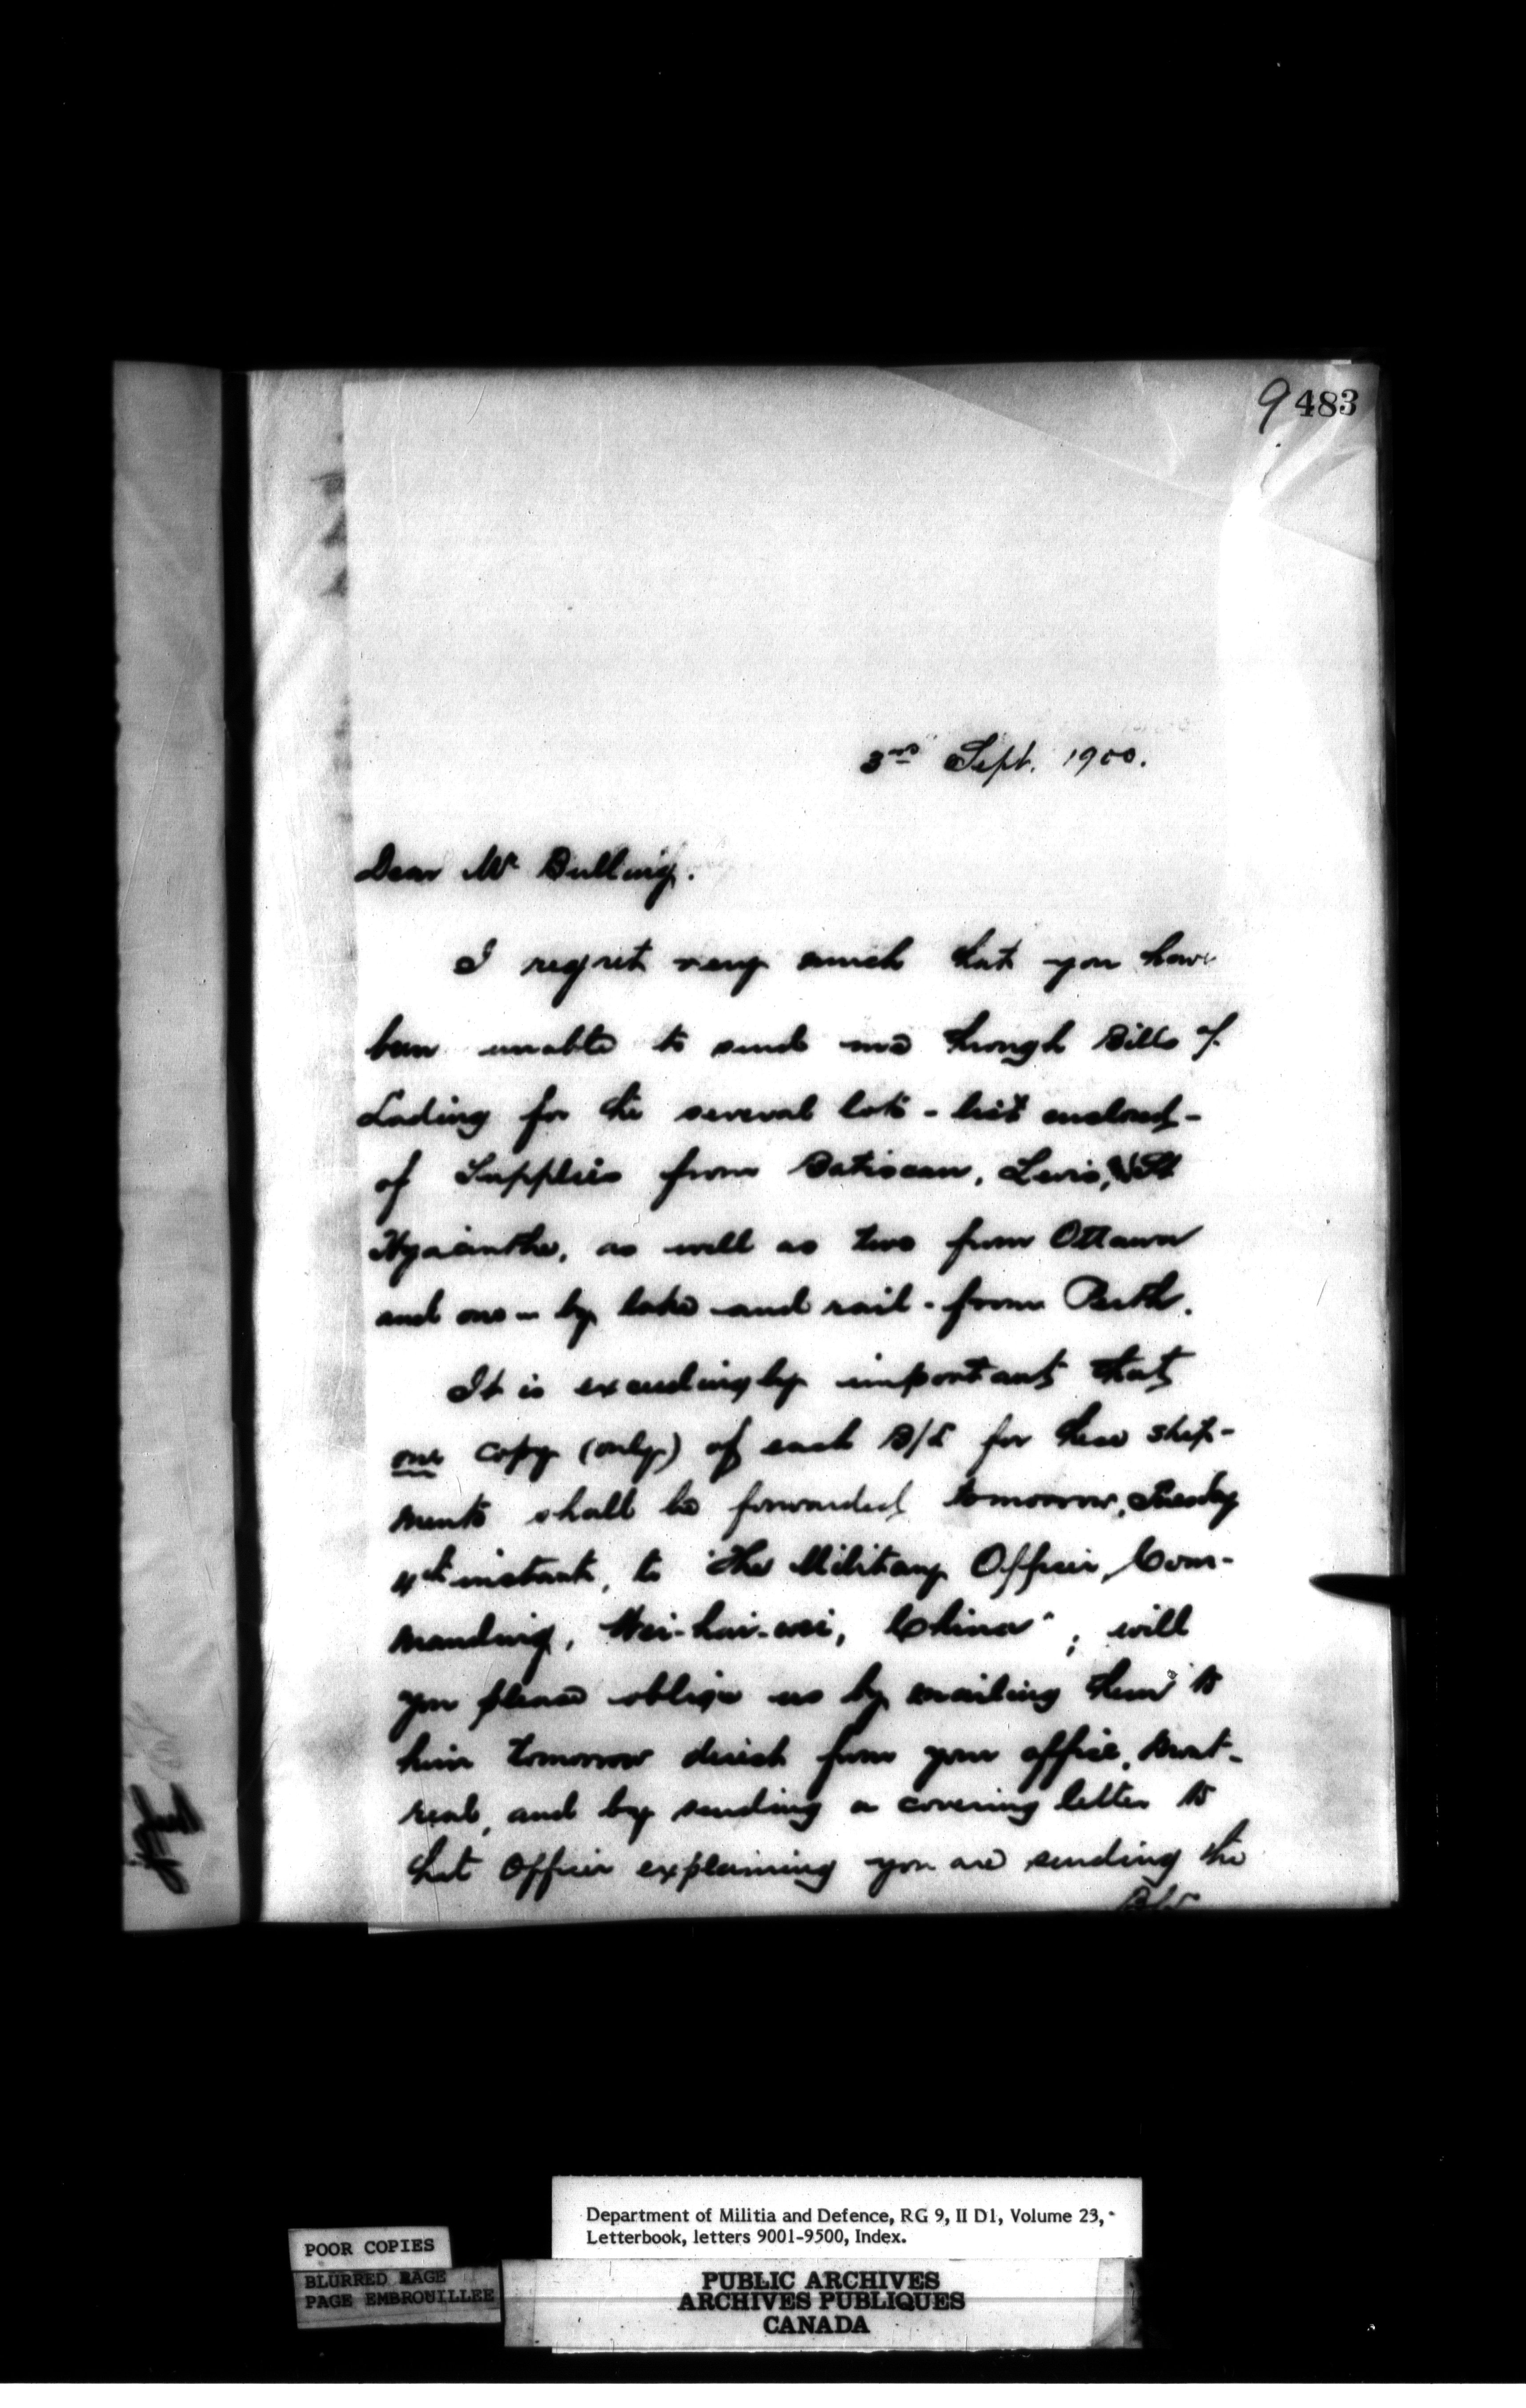 9483
3rd Sept. 1900.
Dear Mr Bulling.
I regret very much that you have
been unable to send me through Bills of
Lading for the several lots - list enclosed -
of Supplies from Batiscan, Levis, & St
Hyacinthe, as well as two from Ottawa
and one - by lake and rail - from Perth.
It is exceedingly important that
one copy (only) of each B/L for these ship-
ments shall be forwarded tomorrow, Tuesday
4th instant, to "The Military Officer, Com-
manding, Wei-hai-wei, China"; will
you please oblige us by mailing them to
him tomorrow direct from your office, Mont-
real, and by sending a covering letter to
that Officer explaining you are sending the
B/L
Department of Militia and Defence, RG 9, II D1, Volume 23,
Letterbook, letters 9001-9500, Index.
POOR COPIES
BLURRED PAGE
PAGE EMBROUILLEE
PUBLIC ARCHIVES
ARCHIVES PUBLIQUES
CANADA